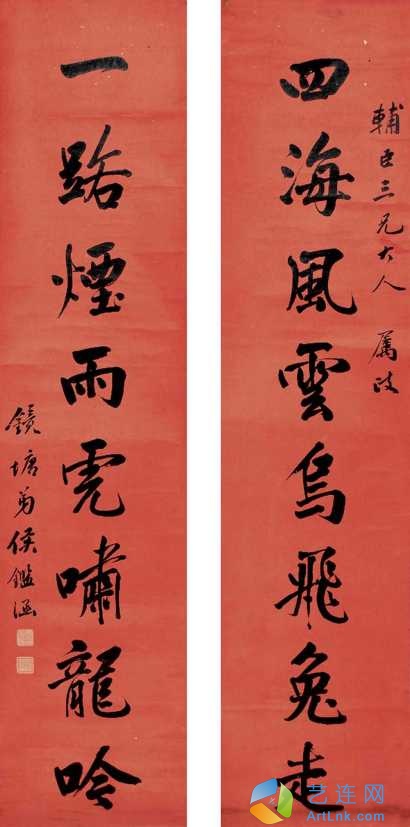 輔臣三兄大人 属政
四海風雲烏飛兔走
一路煙雨虎嘯龍吟
鏡塘弟侯鑑涵
艺连网
ArtLnk.com